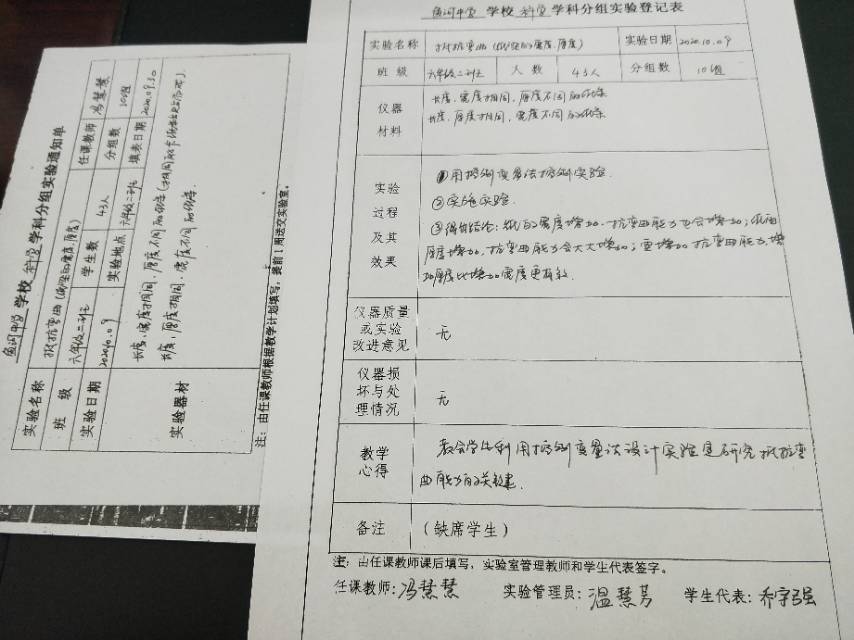 鱼河中心 学校 科学 学科分组实验登记表
实验名称 抵抗弯曲(纸梁的宽度,厚度) 实验日期 2020.10.09
班 级 六年级二班 人 数 43人 分组数 10组
仪器 长度、宽度相同,厚度不同的纸条
材料 长度、厚度相同,宽度不同的纸条
实验 ①用控制变量法控制实验.
过程 ②实施实验.
及其 ③得出结论:纸的宽度增加,抗弯曲能力也会增加;
效果 厚度增加,抗弯曲能力会大大增加;要增加抗弯曲能力,增
加厚度比增加宽度更有效.
仪器质量
或实验 无
改进意见
仪器损
坏与处 无
理情况
教学 教会学生利用控制变量法设计实验是研究抵抗弯
心得 曲能力的关键.
备注 (缺席学生)
注:由任课教师课后填写,实验室管理教师和学生代表签字。
任课教师:冯慧慧 实验管理员:温慧芳 学生代表:乔宇强
鱼河中心 学校 科学 学科分组实验通知单
实验名称 抵抗弯曲(纸梁的宽度,厚度) 任课教师 冯慧慧
班 级 六年级二班 学生数 43人 分组数 10组
实验日期 2020.10.09 实验地点 六年级二班 填表日期 2020.09.30
实验器材 长度、宽度相同,厚度不同的纸条
长度、厚度相同,宽度不同的纸条.
注:由任课教师根据教学计划填写,提前1周送交实验室。